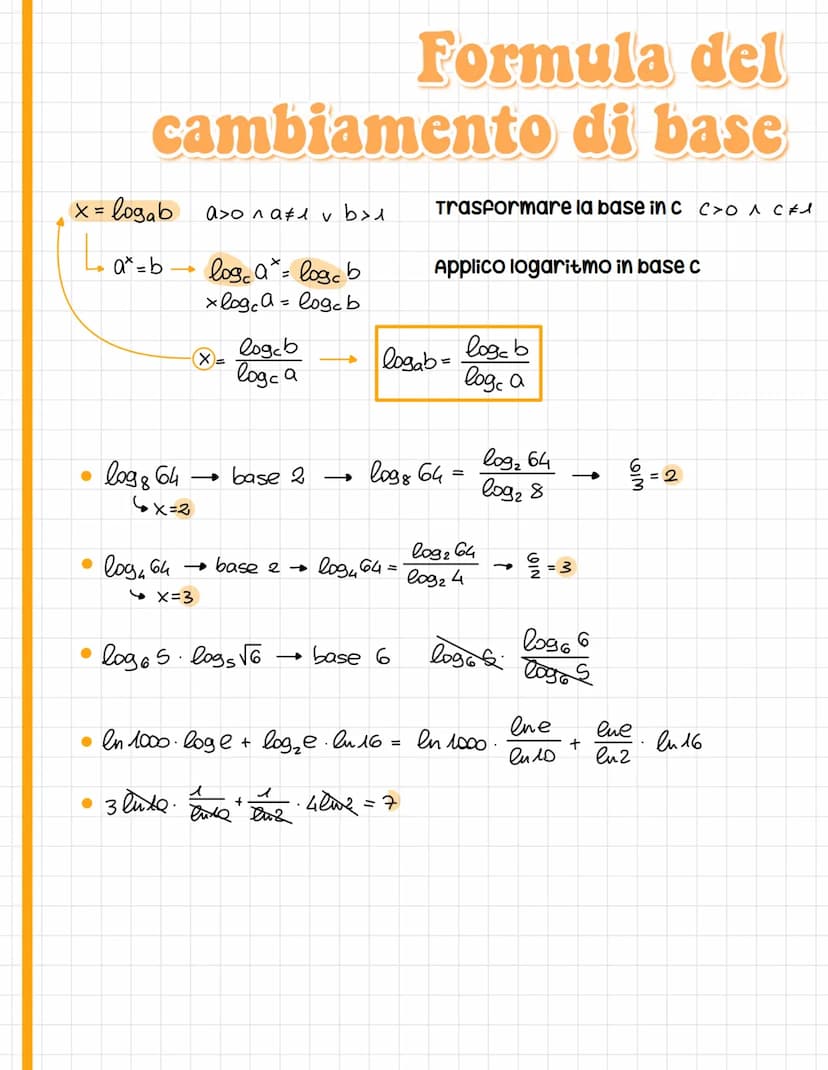 Formula del
cambiamento di base
x = logₐb a>0 ∧ a≠1 ∨ b>1 Trasformare la base in c c>0 ∧ c≠1
aˣ=b → log꜀ aˣ = log꜀ b Applico logaritmo in base c
x log꜀ a = log꜀ b
x = log꜀b / log꜀ a → logₐb = log꜀ b / log꜀ a
• log₈ 64 → base 2 → log₈ 64 = log₂ 64 / log₂ 8 → 6/3 = 2
↳ x=2
• log₄ 64 → base 2 → log₄ 64 = log₂ 64 / log₂ 4 → 6/2 = 3
↳ x=3
• log₆ 5 · log₅ √6 → base 6 log₆ 5 · log₆ 6 / log₆ 5
• ln 1000 · log e + log₂ e · ln 16 = ln 1000 · ln e / ln 10 + ln e / ln 2 · ln 16
• 3 ln 10 · 1 / ln 10 + 1 / ln 2 · 4 ln 2 = 7